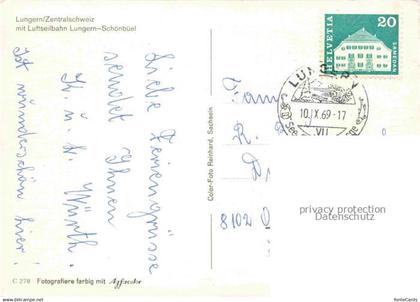 Lungern/Zentralschweiz
mit Luftseilbahn Lungern-Schönbüel
Liebe Feriengrüsse
sendet Ihnen
Th. u. H. Würth.
Ist wunderschön hier!
C 278 Fotografiere farbig mit Agfacolor
Color-Foto Reinhard, Sachseln
HELVETIA
20
SAMEDAN
LUNGERN
10.IX.69-17
VII
Fam
R.
D
8102
privacy protection
Datenschutz